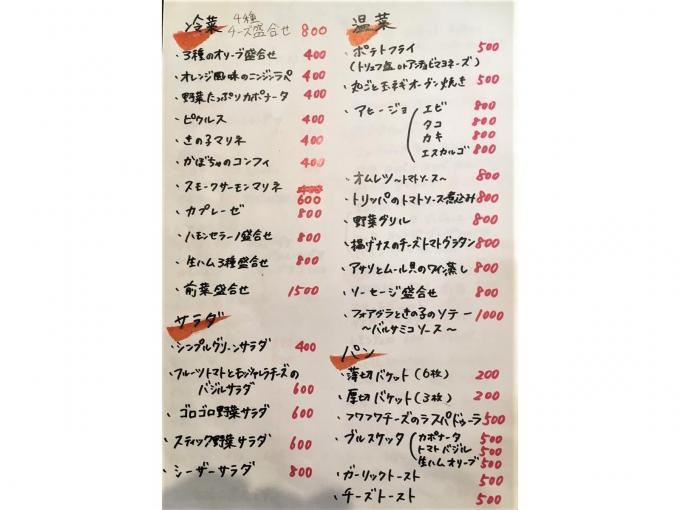 冷菜
4種
チーズ盛合せ 800
・3種のオリーブ盛合せ 400
・オレンジ風味のニンジンラペ 400
・野菜たっぷりカポナータ 400
・ピクルス 400
・きの子マリネ 400
・かぼちゃのコンフィ 400
・スモークサーモンマリネ
600
・カプレーゼ 800
・ハモンセラーノ盛合せ 800
・生ハム3種盛合せ 800
・前菜盛合せ 1500
サラダ
・シンプルグリーンサラダ 400
・フルーツトマトとモッツァレラチーズの
バジルサラダ 600
・ゴロゴロ野菜サラダ 600
・スティック野菜サラダ 600
・シーザーサラダ 800
温菜
・ポテトフライ 500
(トリュフ塩 orアンチョビマヨネーズ)
・丸ごと玉ネギオーブン焼き 500
・アヒージョ エビ 800
タコ 800
カキ 800
エスカルゴ 800
・オムレツ〜トマトソース〜 800
・トリッパのトマトソース煮込み 800
・野菜グリル 800
・揚げナスのチーズトマトグラタン 800
・アサリとムール貝のワイン蒸し 800
・ソーセージ盛合せ 800
・フォアグラときの子のソテー 1000
〜バルサミコソース〜
パン
・薄切バケット(6枚) 200
・厚切バケット(3枚) 200
・フワフワチーズのラスパドゥーラ 500
・ブルスケッタ カポナータ 500
トマトバジル 500
生ハムオリーブ 500
・ガーリックトースト 500
・チーズトースト 500